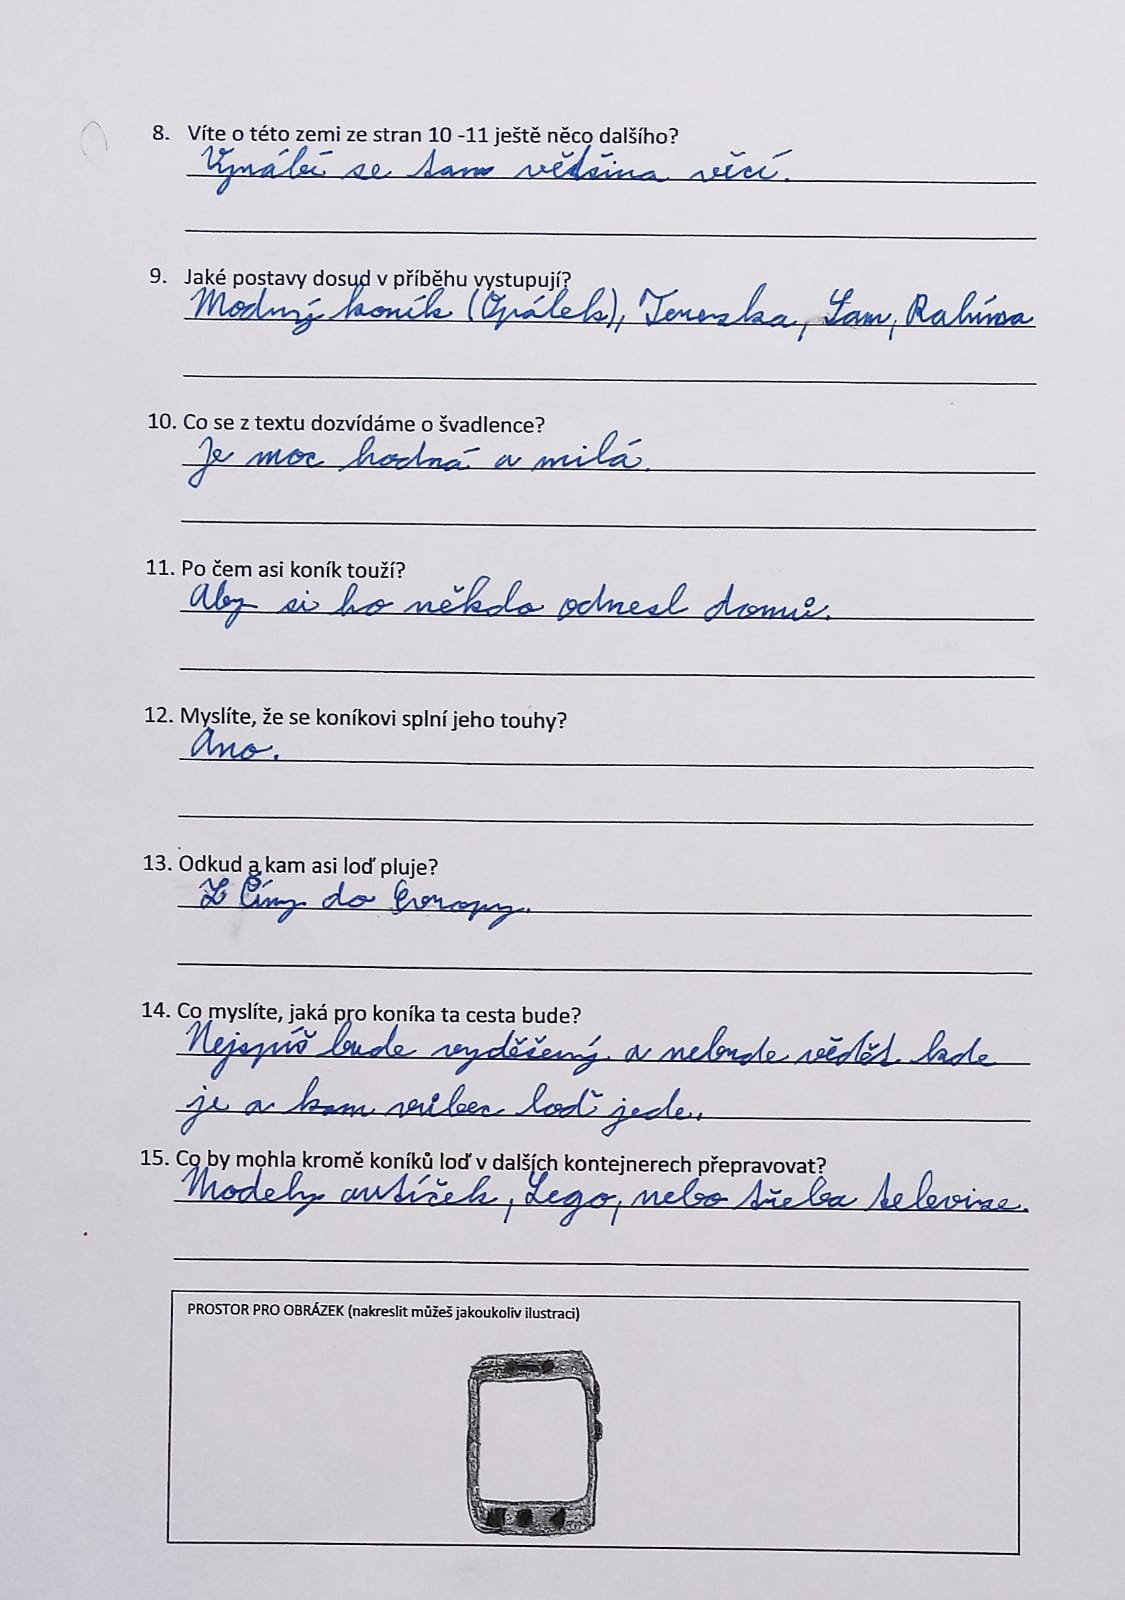 8. Víte o této zemi ze stran 10 -11 ještě něco dalšího?
Vyrábí se tam většina věcí.
9. Jaké postavy dosud v příběhu vystupují?
Modrý koník (Opálek), Terezka, Sam, Rahima
10. Co se z textu dozvídáme o švadlence?
Je moc hodná a milá.
11. Po čem asi koník touží?
Aby si ho někdo odnesl domů.
12. Myslíte, že se koníkovi splní jeho touhy?
Ano.
13. Odkud a kam asi loď pluje?
Z Číny do Evropy.
14. Co myslíte, jaká pro koníka ta cesta bude?
Nejspíš bude vyděšený a nebude vědět kde
je a kam vůbec loď jede.
15. Co by mohla kromě koníků loď v dalších kontejnerech přepravovat?
Modely autíček, Lego, nebo třeba televize.
PROSTOR PRO OBRÁZEK (nakreslit můžeš jakoukoliv ilustraci)